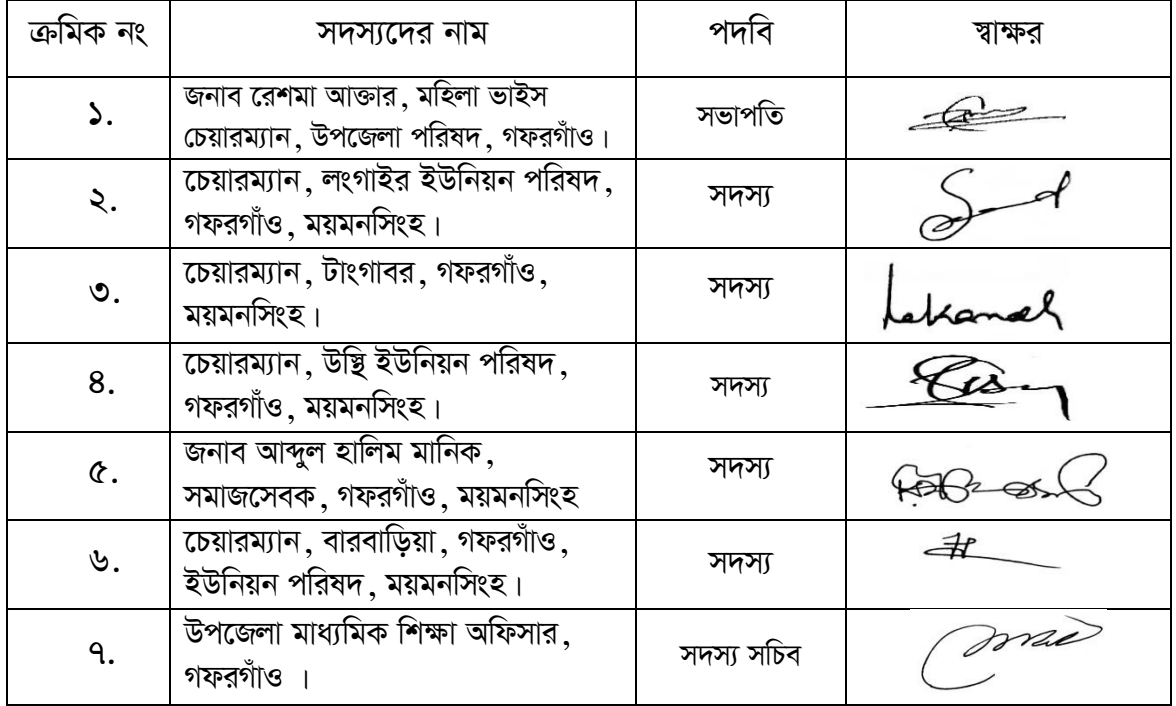 ক্রমিক নং সদস্যদের নাম পদবি স্বাক্ষর
১. জনাব রেশমা আক্তার, মহিলা ভাইস
চেয়ারম্যান, উপজেলা পরিষদ, গফরগাঁও। সভাপতি
২. চেয়ারম্যান, লংগাইর ইউনিয়ন পরিষদ,
গফরগাঁও, ময়মনসিংহ। সদস্য
৩. চেয়ারম্যান, টাংগাবর, গফরগাঁও,
ময়মনসিংহ। সদস্য
৪. চেয়ারম্যান, উস্থি ইউনিয়ন পরিষদ,
গফরগাঁও, ময়মনসিংহ। সদস্য
৫. জনাব আব্দুল হালিম মানিক,
সমাজসেবক, গফরগাঁও, ময়মনসিংহ সদস্য
৬. চেয়ারম্যান, বারবাড়িয়া, গফরগাঁও,
ইউনিয়ন পরিষদ, ময়মনসিংহ। সদস্য
৭. উপজেলা মাধ্যমিক শিক্ষা অফিসার,
গফরগাঁও । সদস্য সচিব